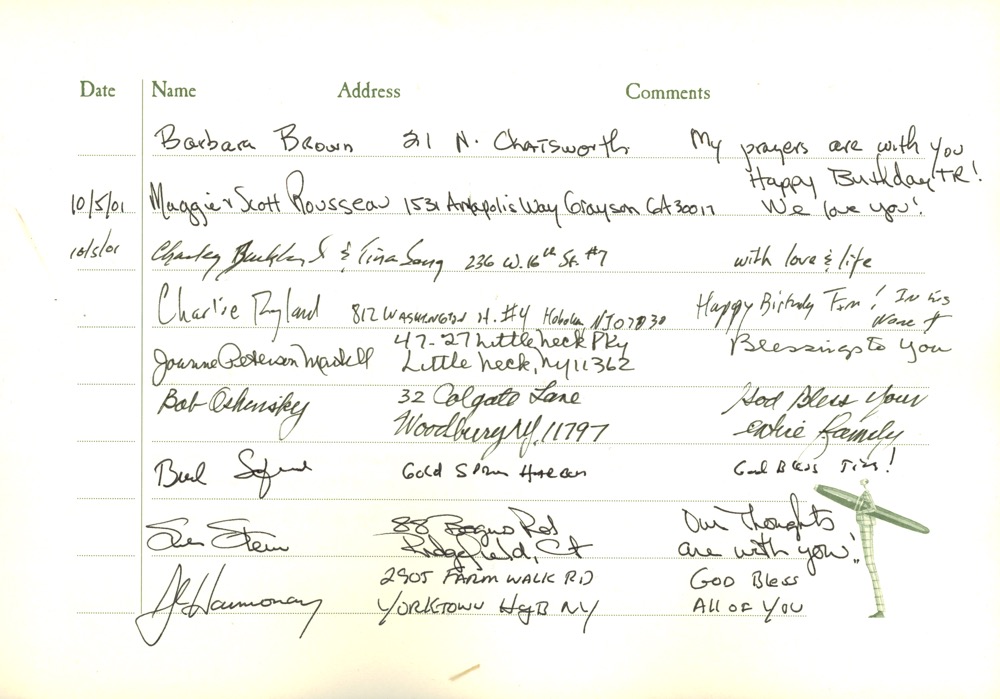 Date Name Address Comments
Barbara Brown 21 N. Chatsworth My prayers are with you
Happy Birthday TR!
10/5/01 Maggie & Scott Rousseau 1531 Annapolis Way Grayson GA 30017 We love you!
10/5/01 Charley & Tina Song 236 W. 16th St. #7 with love & life
Charlie Ryland 812 Washington St. #4 Hoboken NJ 07030 Happy Birthday Tim! In his
Name
47-27 Little Neck Pky Blessings to you
Joanne Peterson Little Neck, NY 11362
Bob Oshinsky 32 Colgate Lane God Bless your
Woodbury NY. 11797 entire family
Gold God Bless Tim!
Sue Stein 88 Rd Our Thoughts
Ridgefield, Ct are with you!
2905 FARM WALK RD GOD BLESS
YORKTOWN NY ALL OF YOU